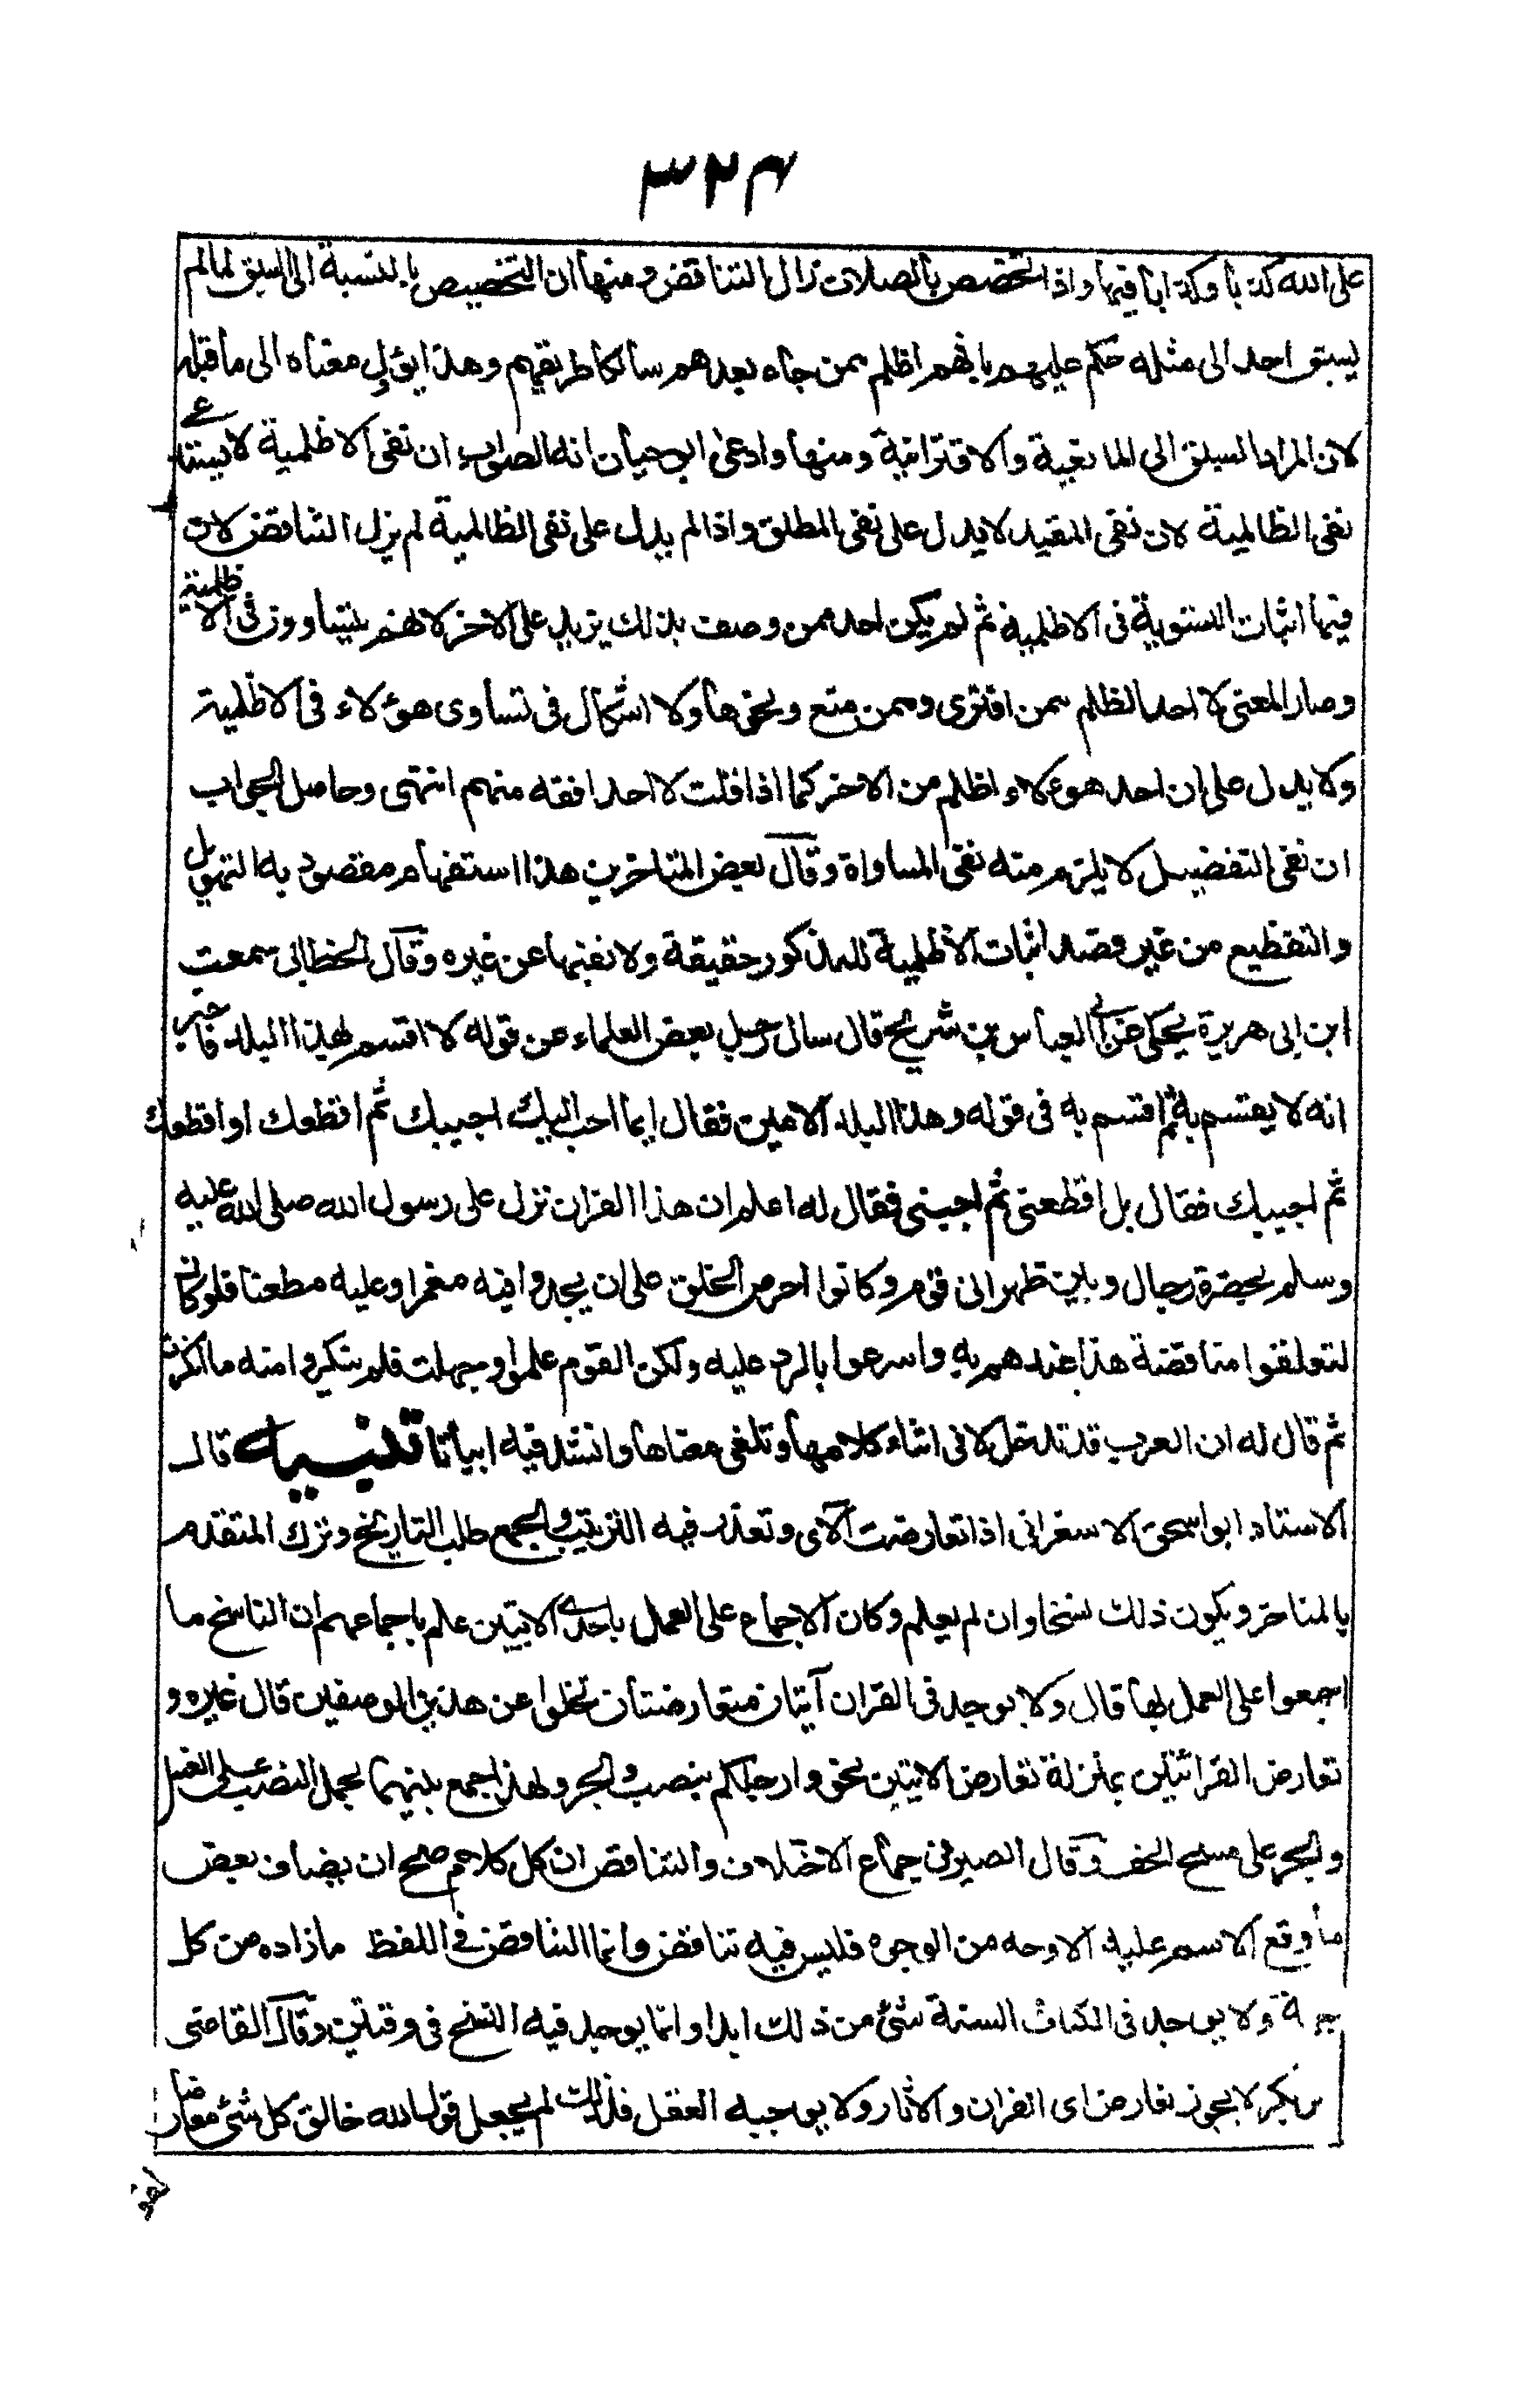 ٣٢٤
على الله كذبا وكذا باقيها واذا تخصص بالصلات زال التناقض ومنها ان التخصيص بالنسبة الى السبق لما لم
يسبق احد الى مثله حكم عليهم بانهم اظلم ممن جاء بعدهم سالكا طريقهم وهذا يؤل معناه الى ما قبله
لان المراد السبق الى المانعية والافترائية ومنها وادعى ابو حيان انه الصواب ان نفى الاظلمية لا يستدعى
نفى الظالمية لان نفى المقيد لا يدل على نفى المطلق واذا لم يدل على نفى الظالمية لم يزل التناقض لان
فيها اثبات التسوية فى الاظلمية ثم لم يكن احد ممن وصف بذلك يزيد على الاخر لانهم يتساوون فى الاظلمية
وصار المعنى لا احد اظلم ممن افترى وممن منع ونحوها ولا اشكال فى تساوى هؤلاء فى الاظلمية
ولا يدل على ان احد هؤلاء اظلم من الاخر كما اذا قلت لا احد افقه منهم انتهى وحاصل الجواب
ان نفى التفضيل لا يلزم منه نفى المساواة وقال بعض المتاخرين هذا استفهام مقصود به التهويل
والتفظيع من غير قصد اثبات الاظلمية للمذكور حقيقة ولا نفيها عن غيره وقال الخطابى سمعت
ابن ابى هريرة يحكى عن ابى العباس بن شريح قال سال رجل بعض العلماء عن قوله لا اقسم بهذا البلد فاخبر
انه لا يقسم به ثم اقسم به فى قوله وهذا البلد الامين فقال ايما احب اليك اجيبك ثم اقطعك او اقطعك
ثم اجيبك فقال بل اقطعنى ثم اجبنى فقال له اعلم ان هذا القران نزل على رسول الله صلى الله عليه
وسلم بحضرة رجال وبين ظهرانى قوم وكانوا احرص الخلق على ان يجدوا فيه مغمرا وعليه مطعنا فلو كانت
لتعلقوا مناقضة هذا عندهم به واسرعوا بالرد عليه ولكن القوم علموا وجهلت فلم ينكروا منه ما انكرت
ثم قال له ان العرب قد تدخل لا فى اثناء كلامها وتلغى معناها وانشد فيه ابياتا تنبيه قال
الاستاد ابو اسحق الاسفرانى اذا تعارضت الآى وتعذر فيه الترتيب والجمع طلب التاريخ وترك المتقدم
بالمتاخر ويكون ذلك نسخا وان لم يعلم وكان الاجماع على العمل باحدى الايتين علم باجماعهم ان الناسخ ما
اجمعوا على العمل بها قال ولا يوجد فى القران آيتان متعارضتان تخلوا عن هذين الوصفين قال غيره و
تعارض القرائتين بمنزلة تعارض الايتين نحو وارجلكم بنصب والجر ولهذا جمع بينهما بحمل النصب على الغسل
والجر على مسح الخف وقال الصيرفى جماع الاختلاف والتناقض ان كل كلام صح ان يضاف بعض
ما وقع الاسم عليه الا وجه من الوجوه فليس فيه تناقض وانما التناقض فى اللفظ ما زاده من كل
جهة ولا يوجد فى الكتاب السنة شئ من ذلك ابدا وانما يوجد فيه النسخ فى وقتين وقال القاضى
بو بكر لا يجوز تعارض اى القران والاثار ولا يوجبه العقل فلذلك لم يجعل قوله الله خالق كل شئ معارضا